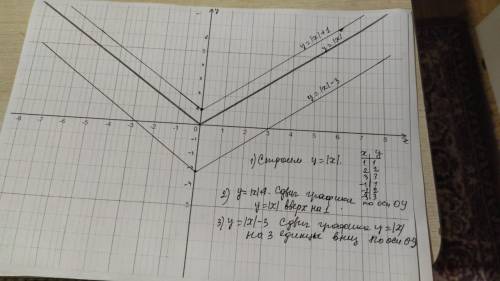 y
y=|x|+1
y=|x|
y=|x|-3
-8 -7 -6 -5 -4 -3 -2 -1 0 1 2 3 4 5 6 7 8 x
1) Строем y=|x|.
x y
1 1
2 2
3 3
-1 1
-2 2
-3 3
2) y=|x|+1. Сдвиг графика
y=|x| вверх на 1 по оси OY
3) y=|x|-3 Сдвиг графика y=|x|
на 3 единицы вниз по оси OY